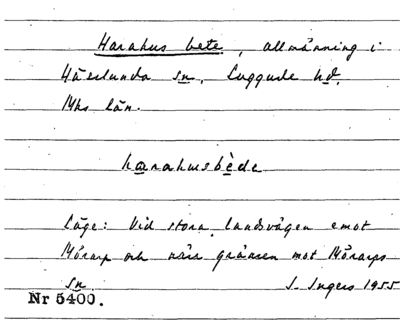 Harahus bete, allmänning i
Häslunda sn, Luggude hd,
Mhs län.
harahusbède
Läge: Vid stora landsvägen emot
Mörarp och nära gränsen mot Mörarps
sn I. Ingers 1955
Nr 5400.